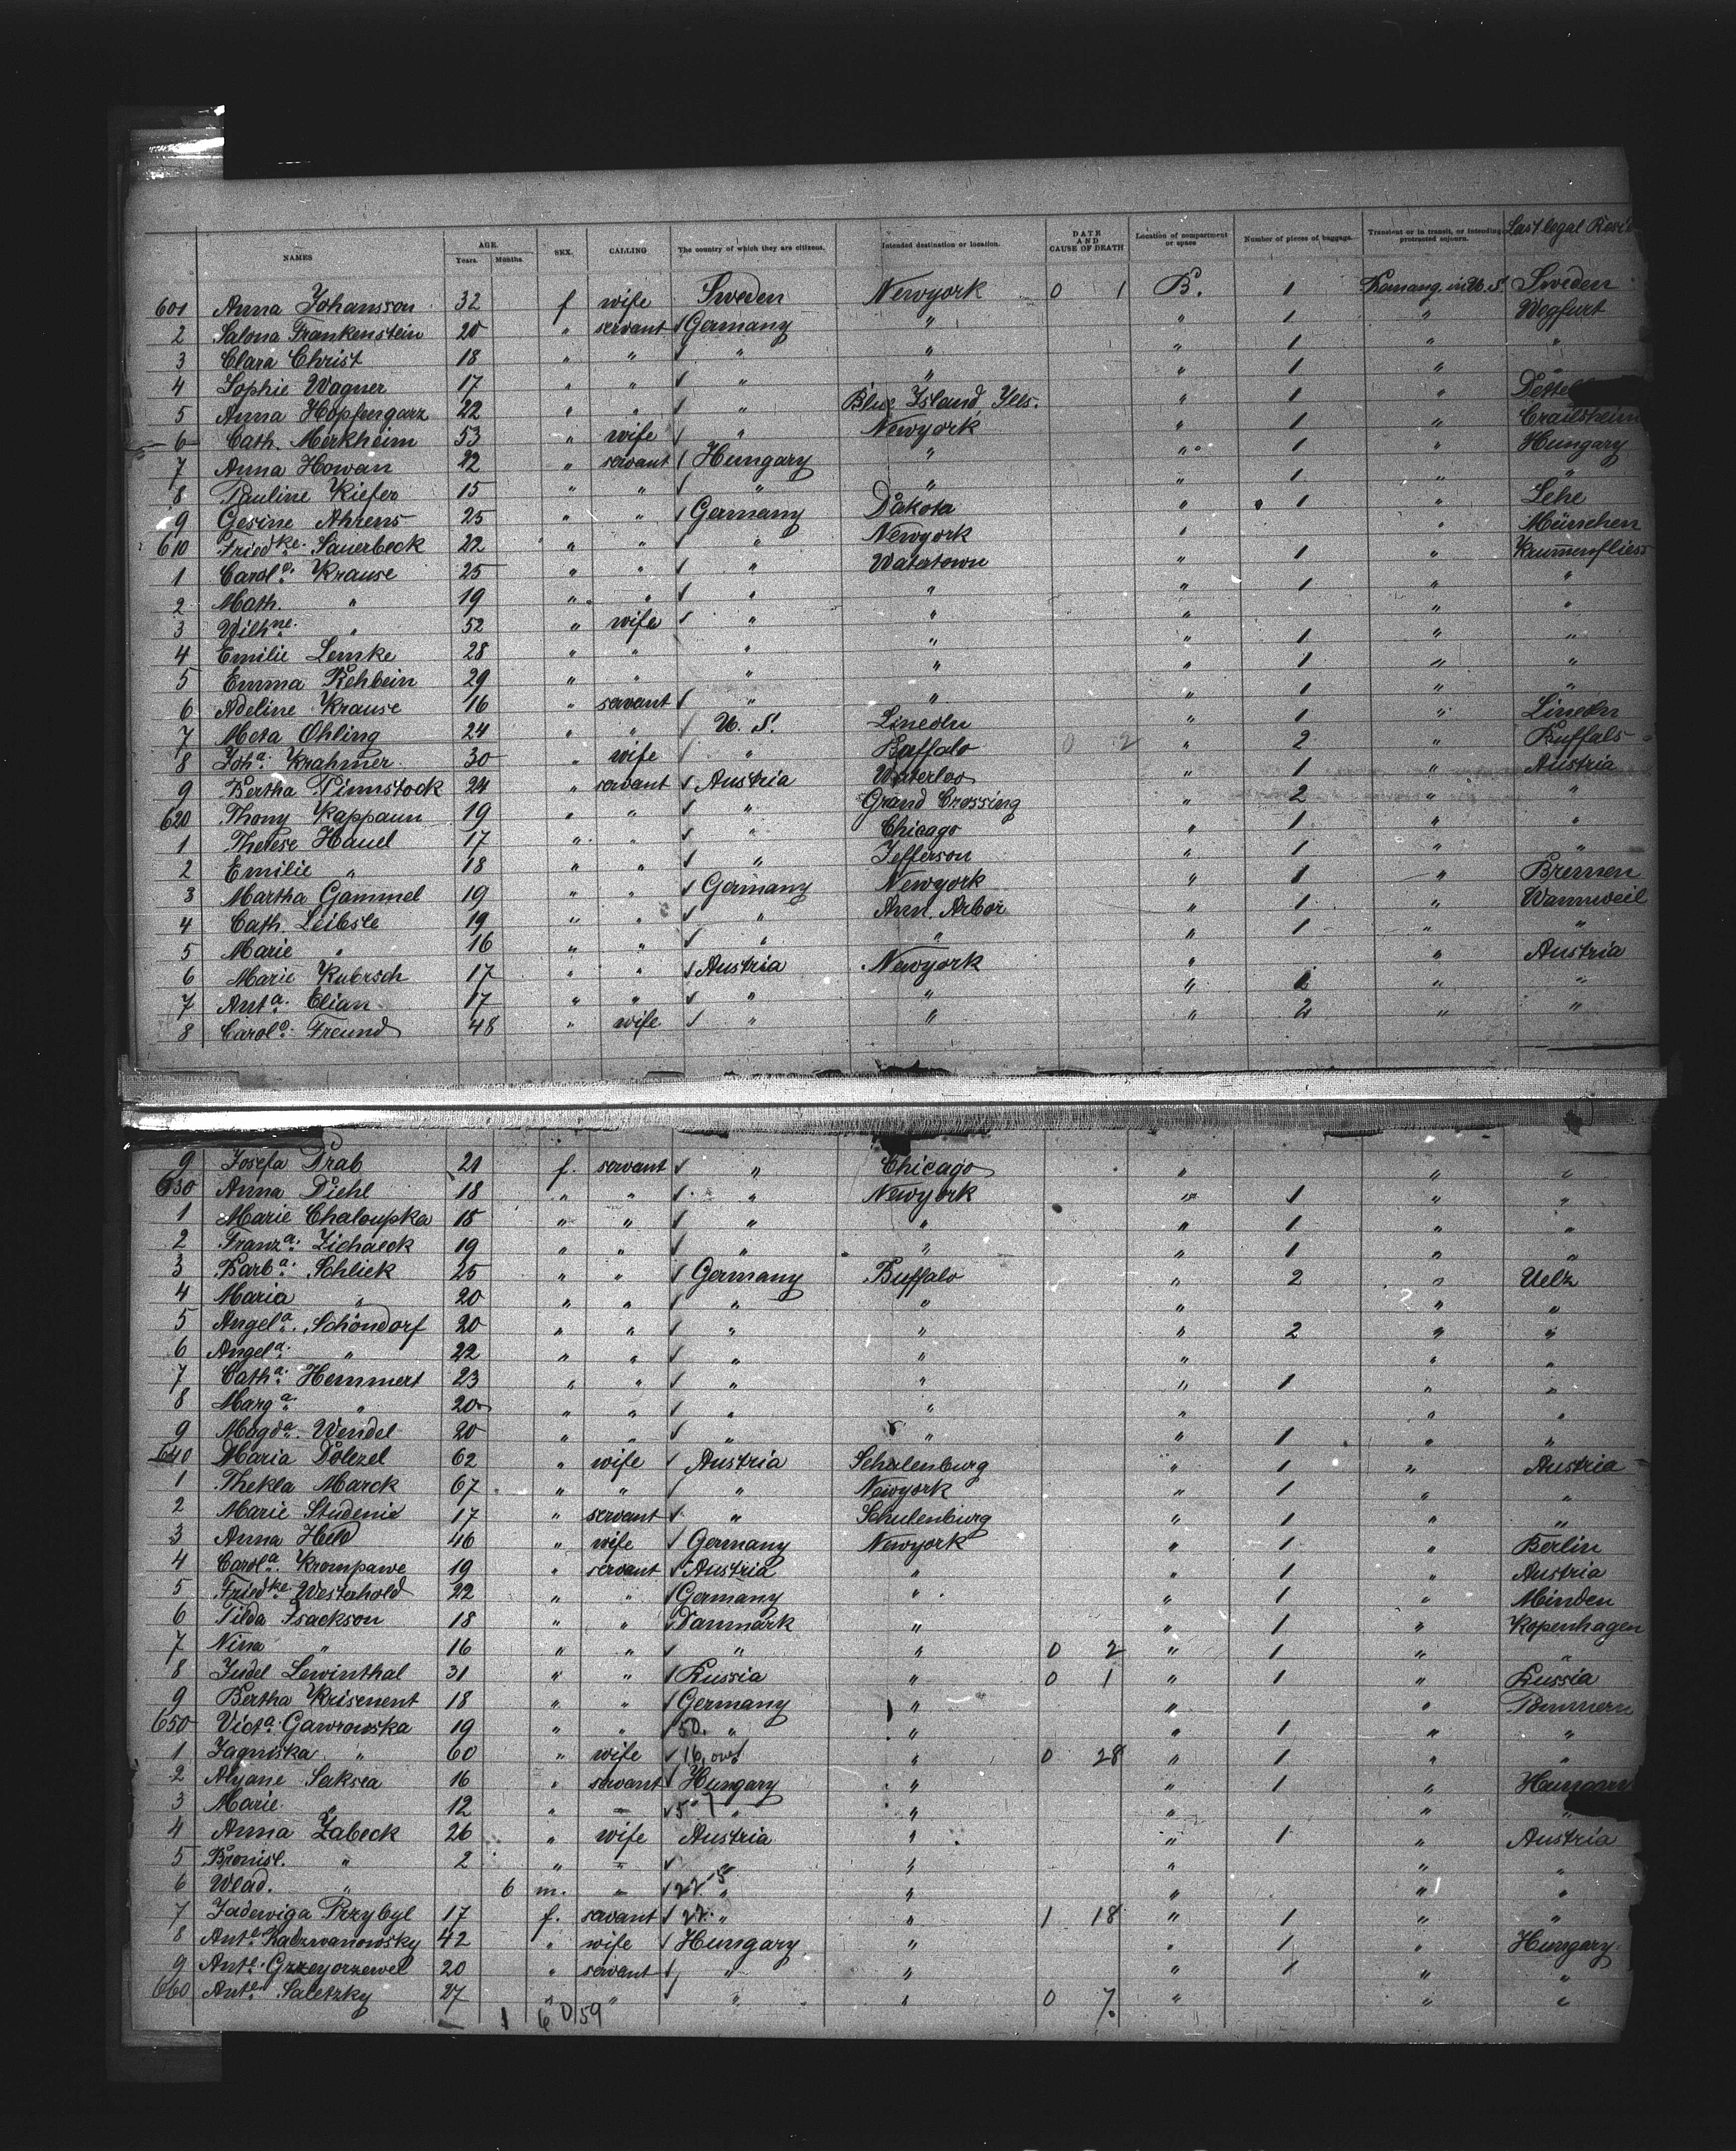 NAMES AGE. Years. Months. SEX. CALLING The country of which they are citizens. Intended destination or location. DATE AND CAUSE OF DEATH Location of compartment or space Number of pieces of baggage. Transient or in transit, or intending protracted sojourn. Last legal
601 Anna Johansson 32 f wife Sweden Newyork 0 1 B. 1 in U. S. Sweden
2 Salona Frankenstein 20 " servant √ Germany " " 1 "
3 Clara Christ 18 " " √ " " " 1 " "
4 Sophie Wagner 17 " " √ " " " 1 " "
5 Anna Hopfengarz 22 " " √ " Blue Island Yels. " 1 "
6 Cath. Merkheim 53 " wife √ " Newyork " 1 " Crailsheim
7 Anna Howan 22 " servant √ Hungary " " 1 " Hungary
8 Pauline Kiefer 15 " " √ " " " 1 " "
9 Gesine Ahrens 25 " " √ Germany Dakota " 1 " Lehe
610 Friedke. Sauerbeck 22 " " √ " Newyork " " München
1 Carole. Krause 25 " " √ " Watertown " 1 " Krummenfliess
2 Math. " 19 " " √ " " " 1 " "
3 Wilhne. " 52 " wife √ " " " " "
4 Emilie Lemke 28 " " " " " 1 " "
5 Emma Rehbein 29 " " " " " 1 " "
6 Adeline Krause 16 " servant √ " " " 1 " "
7 Meta Ohling 24 " " √ U. S. Lincoln " 1 " Lincoln
8 Joha. Krahmer 30 " wife √ " Buffalo 0 2 " 2 " Buffalo
9 Bertha Pinnstock 24 " servant √ Austria Waterloo " 1 " Austria
620 Thony Kappaun 19 " " √ " Grand Crossing " 2 " "
1 Therese Hauel 17 " " √ " Chicago " 1 " "
2 Emilie " 18 " " √ " Jefferson " 1 " "
3 Martha Gammel 19 " " √ Germany Newyork " 1 " Bremen
4 Cath. Leibsle 19 " " √ " Ann Arbor " 1 " Wannweil
5 Marie " 16 " " √ " " " 1 " "
6 Marie Kubrsch 17 " " √ Austria Newyork " " Austria
7 Anta. Elian 17 " " √ " " " " "
8 Carole. Freund 48 " wife √ " " " 2 " "
9 Josefa Drab 21 f. servant √ " Chicago " " "
630 Anna Diehl 18 " " √ " Newyork " 1 " "
1 Marie Chaloupka 18 " " √ " " " 1 " "
2 Franza. Zichaeck 19 " " √ " " " 1 " "
3 Barba. Schliek 25 " " √ Germany Buffalo " 2 " Uelz
4 Maria " 20 " " √ " " " " "
5 Angela. Schöndorf 20 " " √ " " " 2 " "
6 Angela. " 22 " " √ " " " " "
7 Catha. Hemmert 23 " " √ " " " 1 " "
8 Marga. " 20 " " √ " " " " "
9 Magda. Wendel 20 " " √ " " " 1 " "
640 Maria Dolezel 62 " wife √ Austria Schulenburg " 1 " Austria
1 Thekla Marck 67 " " √ " Newyork " 1 " "
2 Marie Studenie 17 " servant √ " Schulenburg " 1 " "
3 Anna Held 46 " wife √ Germany Newyork " 1 " Berlin
4 Carola. Krompawe 19 " servant √ Austria " " 1 " Austria
5 Friedke. Westerhold 22 " " √ Germany " " 1 " Minden
6 Tilda Isackson 18 " " √ Danmark " " 1 " Kopenhagen
7 Nina " 16 " " √ " " 0 2 " 1 " "
8 Judel Lewinthal 31 " " √ Russia " 0 1 " 1 " Russia
9 Bertha Krisement 18 " " √ Germany " " " Pommern
650 Victa. Gawrowska 19 " " √ 50. " " " 1 " "
1 Jagniska " 60 " wife √ 16 " 0 28 " 1 " "
2 Saksea 16 " servant √ Hungary " " 1 "
3 Marie " 12 " √ " " " " "
4 Anna Zabeck 26 " wife Austria " " 1 " Austria
5 Bronisl. " 2 " √ " " " "
6 Wlad. " 6 m. √ 22 " " " " "
7 Jadewiga Przybyl 17 f. servant √ 22. " " 1 18 " 1 " "
8 Ante. 42 " wife √ Hungary " " 1 " Hungary
9 Ante. Grzeyorzewel 20 " servant √ " " " 1 " "
660 Ante. Saletzky 27 " " √ " " 0 7. " " "
1 6 59